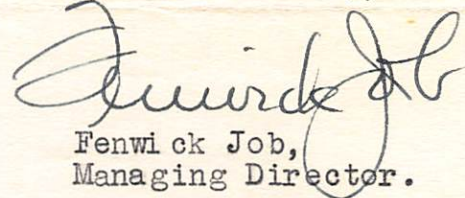 Fenwick Job
Fenwick Job,
Managing Director.